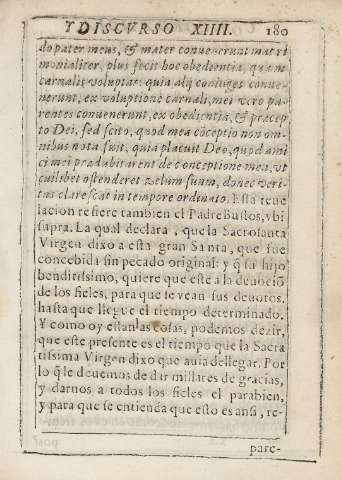 Y DISCVRSO XIIII. 180
do pater meus, & mater conuenerunt matri
monialiter, plus fecit hoc obedientia, quam
carnalis voluptas: quia alij coniuges conue-
nerunt, ex voluptione carnali, mei vero pa-
rentes conuenerunt, ex obedientia, & præcep
to Dei, sed scito, quod mea cōceptio non om-
nibus nota fuit, quia placuit Deo, quod ami
ci mei pra dubitarent de conceptione mea, vt
quilibet ostenderet zelum suum, donec veri-
tas clarescat in tempore ordinato. Esta reue
lacion refiere tambien el Padre Bustos, vbi
supra. La qual declara, que la Sacrosanta
Virgen dixo a esta gran Santa, que fue
concebida sin pecado original: y q̃ su hijo
benditissimo, quiere que estè a la deuociō
de los fieles, para que se vean sus deuotos,
hasta que llegue el tiempo determinado.
Y como oy estan las cosas, podemos dezir,
que este presente es el tiempo que la Sacra
tissima Virgen dixo que auia de llegar. Por
lo q̃ le deuemos de dar millares de gracias,
y darnos a todos los fieles el parabien,
y para que se entienda que esto es ansi, re-
pare-